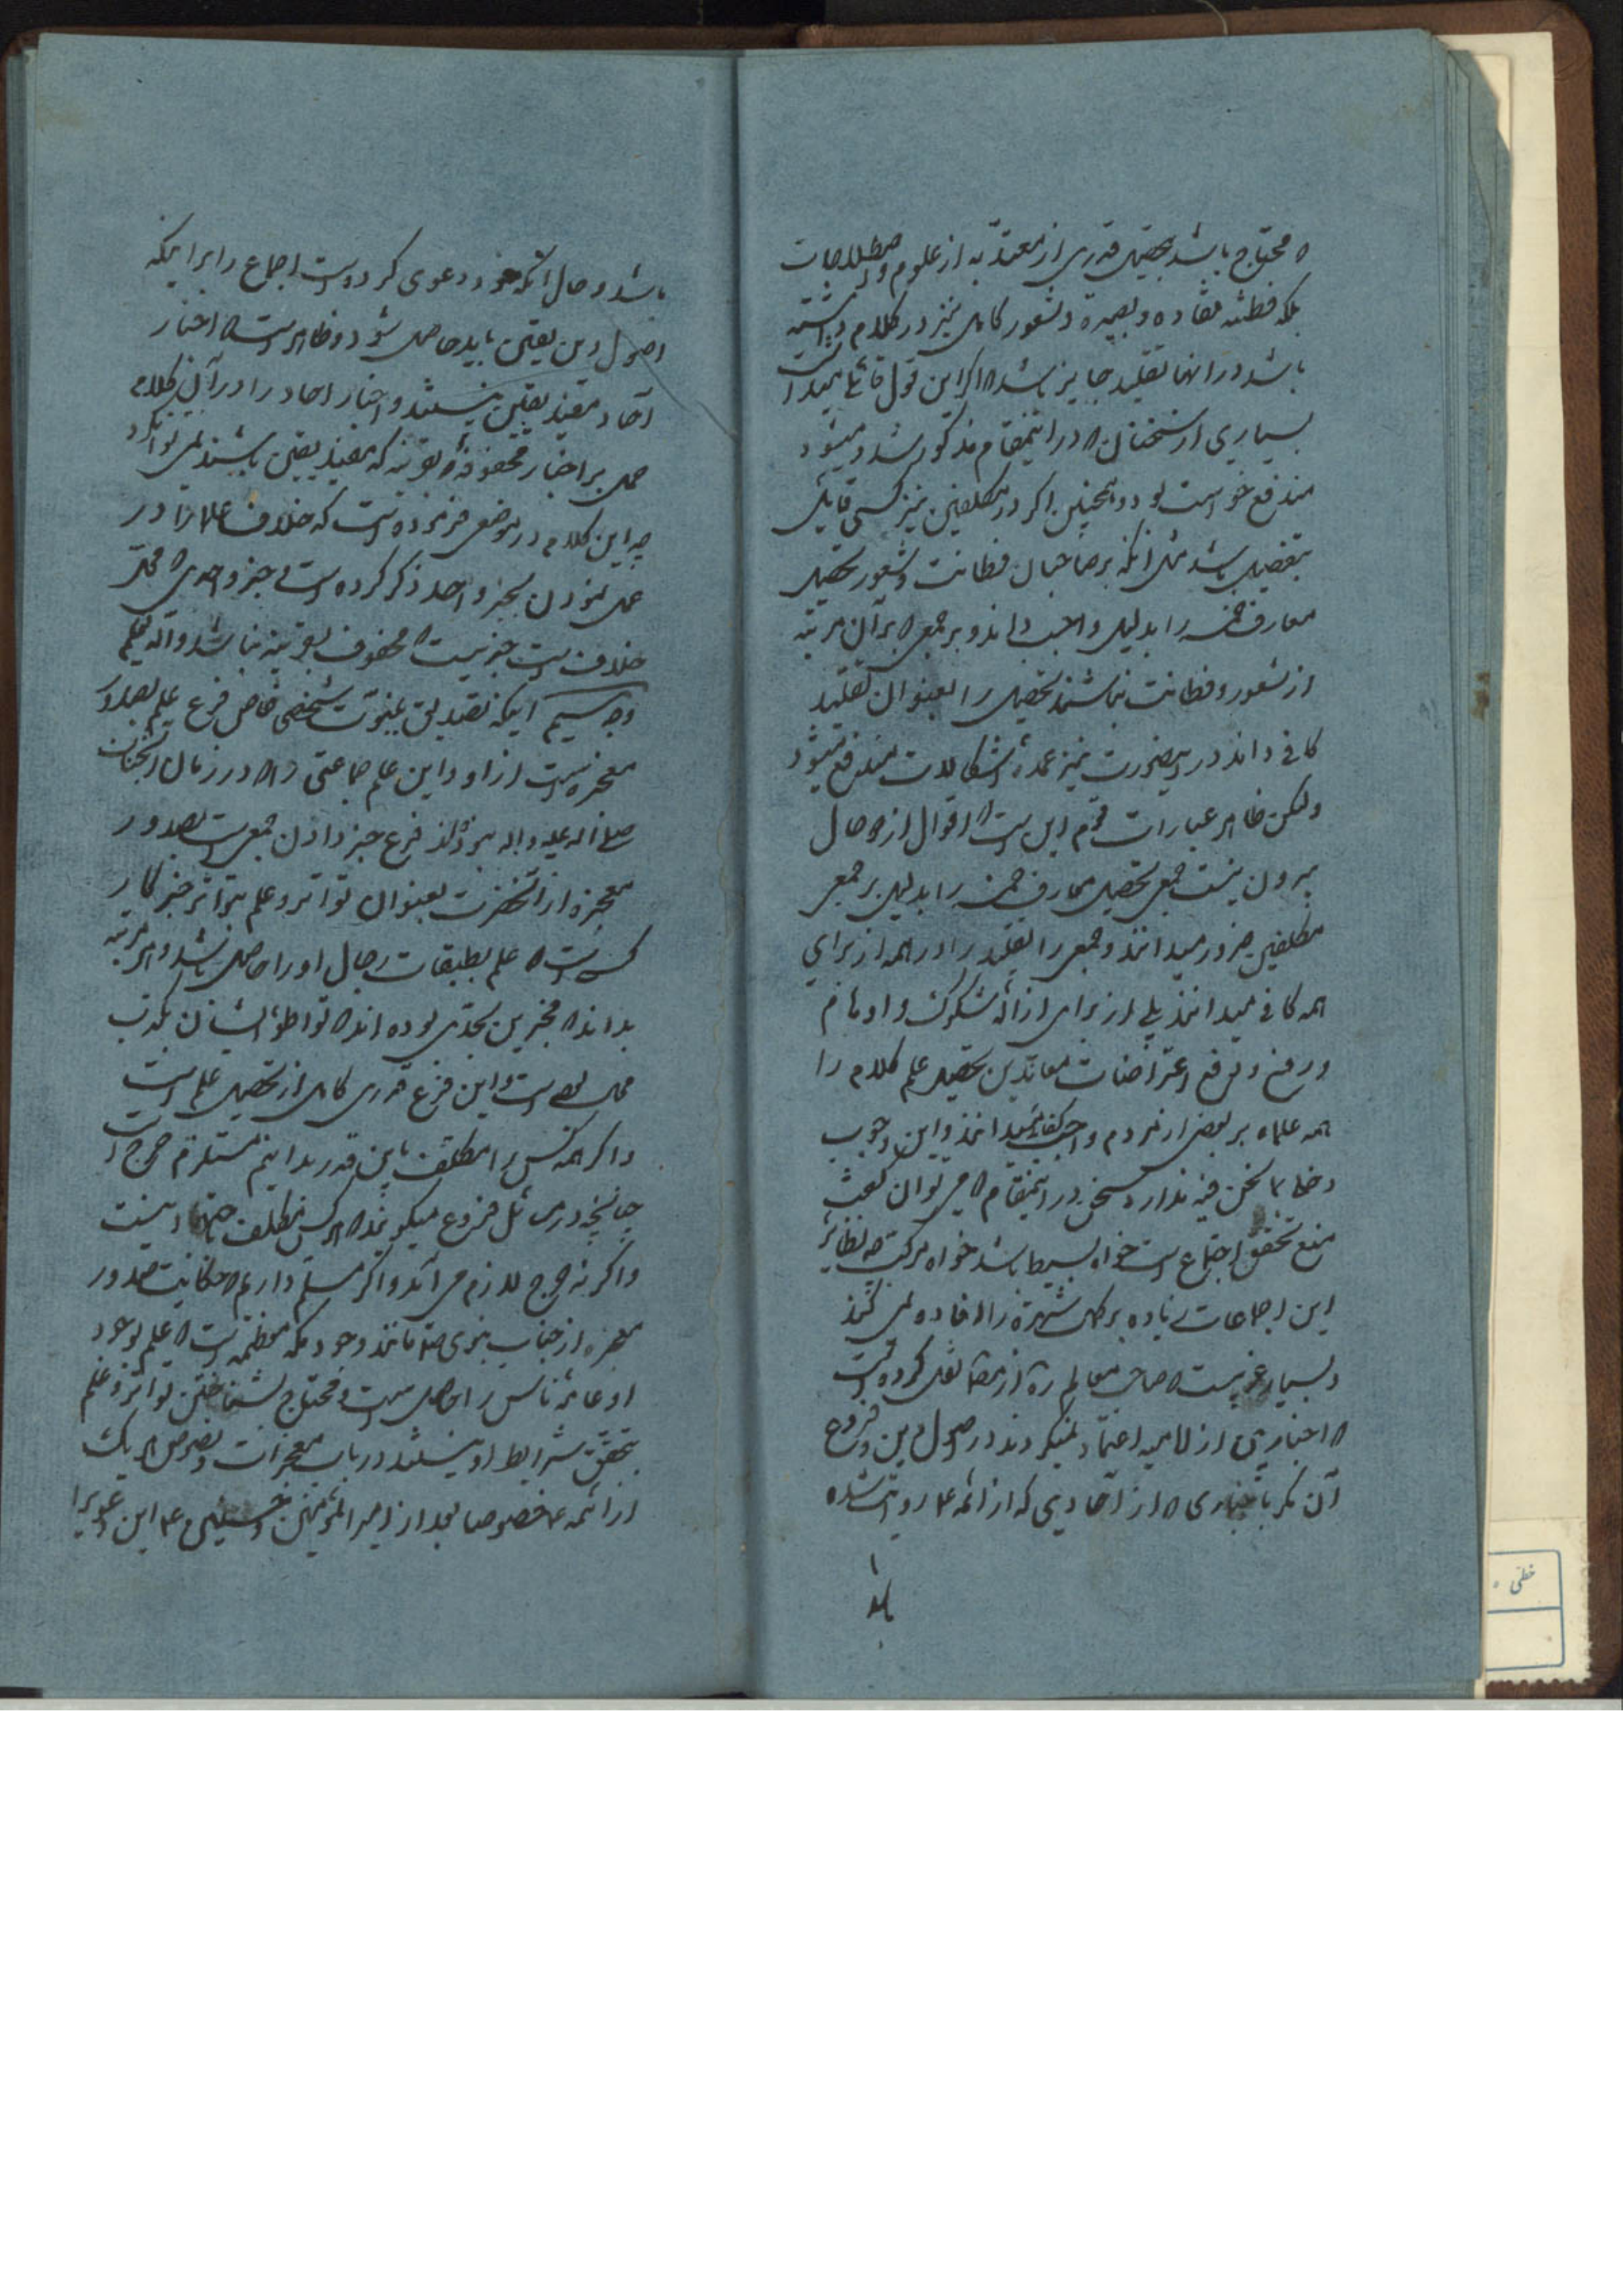 که محتاج باشد بتحصیل قدری از معتدّ به از علوم و اصطلاحات
بلکه فطنه نقاده و بصیرة و شعور کامل نیز در کلام داشته
باشد در آنها تقلید جایز باشد که اگر این قول قائلی میداشت
بسیاری از سخنان که در اینمقام مذکور شد و میشود
مندفع خواست بود و همچنین اگر در مکلفین نیز کسی قایل
بتفصیل باشد مثل آنکه بر صاحبان فطانت و شعور تحصیل
معارف خمسه را بدلیل واجب داند و بر جمعی که بر آن مرتبه
از شعور و فطانت نباشند تحصیل را بعنوان تقلید
کافی داند در اینصورت نیز عمده اشکالات مندفع میشود
ولکن ظاهر عبارات قوم این است که اقوال از دو حال
بیرون نیست جمعی تحصیل معارف خمسه را بدلیل بر جمیع
مکلفین ضرور میدانند و جمعی را تقلید را در همه از برای
همه کافی میدانند بلی از برای ازاله شکوک و اوهام
و رفع و دفع اعتراضات معاندین تحصیل علم کلام را
همه علماء بر بعض از مردم واجب کفائی میدانند و این وجوب
دخلی بما نحن فیه ندارد سخن در اینمقام که می توان گفت
منع تحقق اجماع است خواه بسیط باشد خواه مرکب چه نظایر
این اجماعات زیاده بر کمال شهرة را افاده نمی کنند
و بسیار غریب است که صاحب معالم ره از علامه نقل کرده است
که اخباریین از امامیه اعتماد نمیکردند در اصول دین و فروع
آن مگر باخباری که از آحادی که از ائمه ع روایت شده
باشد و حال آنکه خود دعوی کرده است اجماع را بر اینکه
اصول دین یقین باید حاصل شود و ظاهر است که اخبار
آحاد مفید یقین نیستند و اخبار احاد را در آن کلام
حمل بر اخبار محفوفه بقرینه که مفید یقین باشند نمی توان کرد
چه این کلام در موضعی فرموده است که خلاف علما را در
عمل نمودن بخبر واحد ذکر کرده است و خبر واحدی که محل
خلاف است خبریست که محفوف بقرینه نباشد و الله یعلم
وجه سیم اینکه تصدیق بنبوت شخصی خاص فرع علم بصدور
معجزه است از او و این علم جماعتی را که در زمان آنجناب
صلی الله علیه و اله نبودند فرع خبر دادن جمعی است بصدور
معجزه از آنحضرت بعنوان تواتر و علم بتواتر خبر کار
کسی است که علم بطبقات رجال او را حاصل باشد و هر مرتبه
بداند که مخبرین بحدی بوده اند که تواطؤ ایشان بکذب
محال بوده است و این فرع قدری کامل از تحصیل علم است
و اگر همه کس را مکلف باین قدر بدانیم مستلزم حرج است
چنانچه در مسائل فروع میگویند که هر کس مکلف باجتهاد نیست
و اگر نه حرج لازم می آید و اگر مسلم داریم که حکایت صدور
معجزه از جناب نبوی ص مانند وجود مکه معظمه است که علم بوجود
او عامه ناس را حاصل است و محتاج بشناختن تواتر و علم
بتحقق شرایط او نیستند در باب معجزات و نصوص هر یک
از ائمه ع خصوصا بعد از امیر المؤمنین و حسنین ع این دعوی را